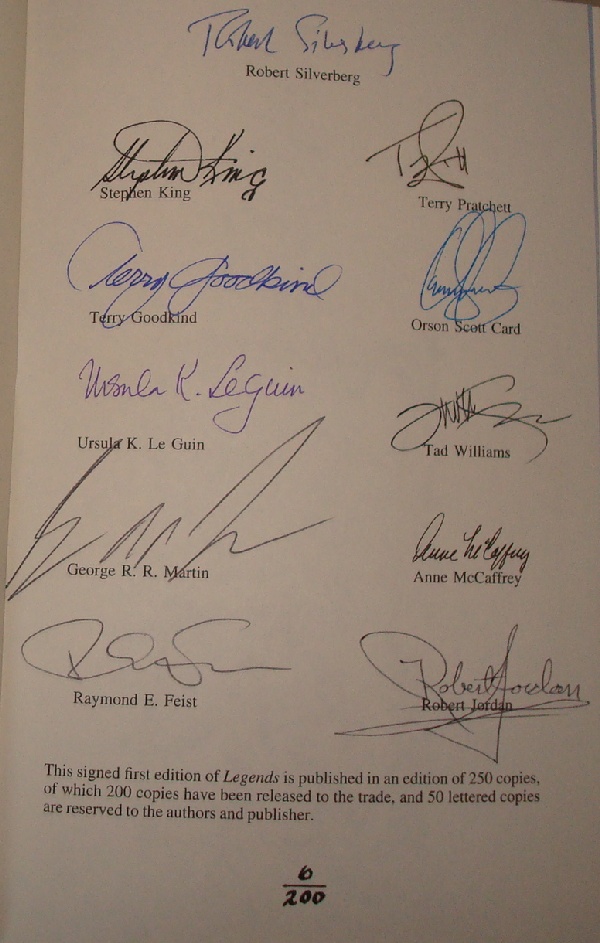 Robert Silverberg
Robert Silverberg
Stephen King
Stephen King
Terry Pratchett
Terry Goodkind
Terry Goodkind
Orson Scott Card
Ursula K. Le Guin
Ursula K. Le Guin
Tad Williams
George R. R. Martin
Anne McCaffrey
Anne McCaffrey
Raymond E. Feist
Robert Jordan
Robert Jordan
This signed first edition of Legends is published in an edition of 250 copies,
of which 200 copies have been released to the trade, and 50 lettered copies
are reserved to the authors and publisher.
6
200